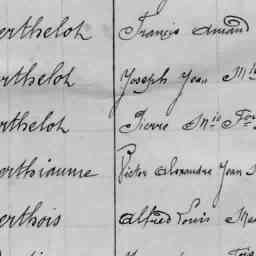 erthelot Francis Amand
erthelot Joseph Jean M
erthelot Pierre Mie
erthiaume Victor Alexandre Jean
erthois Alfred Louis Ma